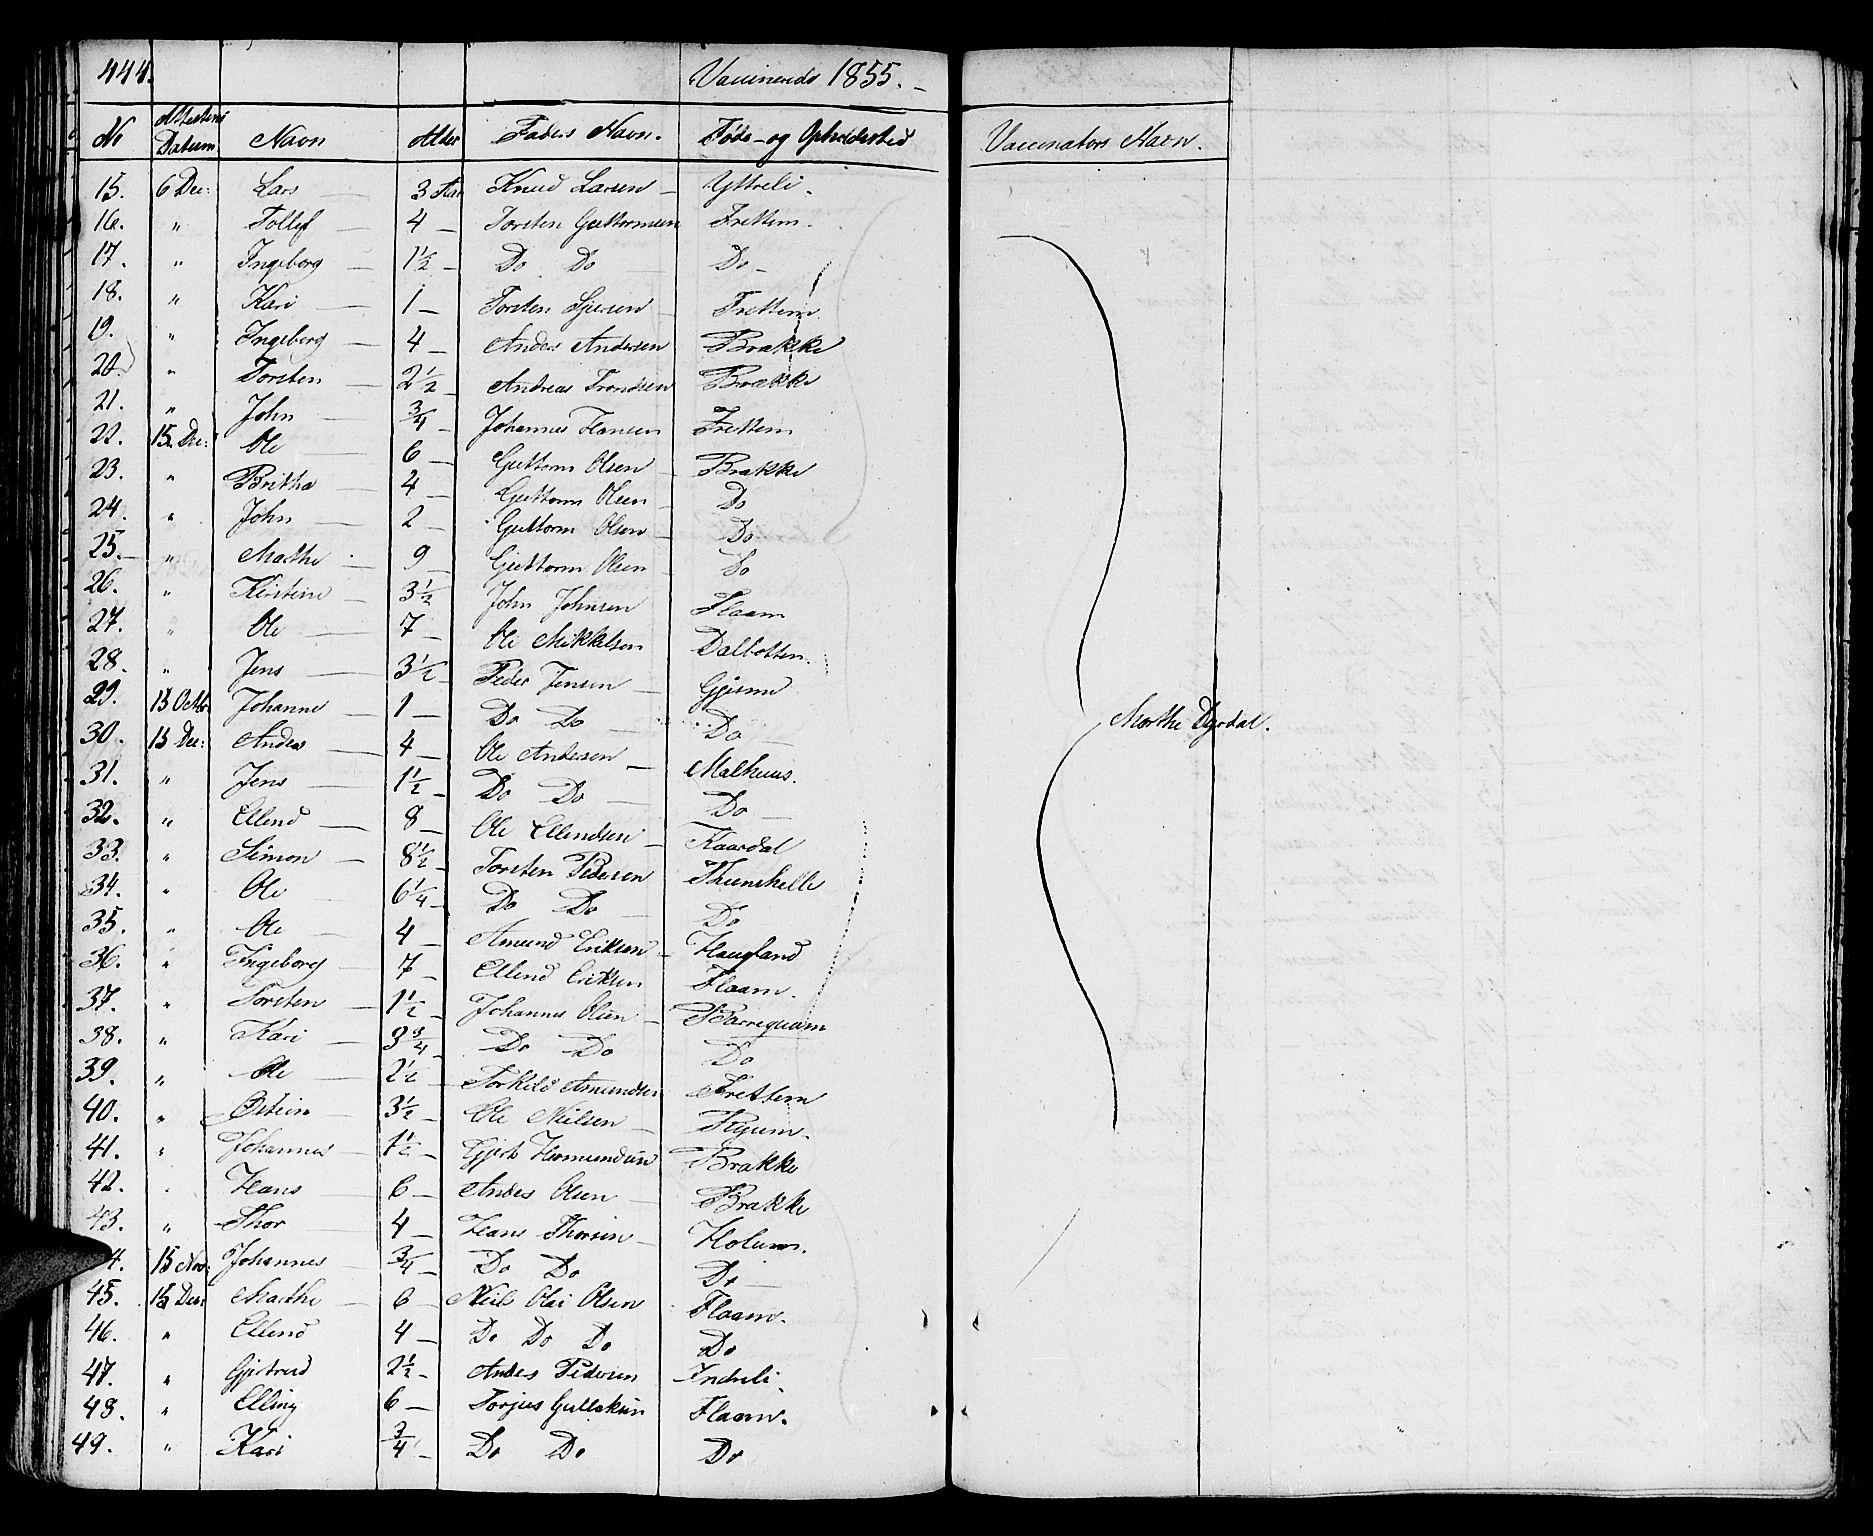 444. Vaccinerede 1855.
No Attestens Datum Navn Alder Faders Navn. Føde- og Opholdssted Vaccinators Navn.
15. 6 Dec: Lars 3 Aar Knud Larsen Yttreli.
16. " Tollef 4 Torsten Guttormsen Frettem.
17. " Ingeborg 1½ Do Do Do
18. " Kari 1 Torsten Frettem.
19. " Ingeborg 4 Anders Andersen Brække
20. " Torsten 2½ Andreas Trondsen Brække
21. " John ¾ Johannes Hansen Frettem
22. 15. Dec: Ole 6 Guttorm Olsen Brække
23. " Britha 4 Guttorm Olsen Do
24. " John 2 Guttorm Olsen Do
25. " Marthe 9 Guttorm Olsen Do
26. " Kirstine 3½ John Johnsen Flaam
27. " Ole 7 Ole Mikkelsen Dalbotten.
28. " Jens 3½ Peder Jensen Gjerne
29. 15 Octbr Johanne 1 Do Do Do
30. 15 Dec: Anders 4 Ole Andersen Melhuus.
31. " Jens 1½ Do Do Do
32. " Ellend 8 Ole Ellendsen Kaardal
33. " Simon 8½ Torsten Pedersen Thunshelle
34. " Ole 6¼ Do Do Do
35. " Ole 4 Amund Eriksen Haugland
36. " Ingeborg 7 Ellend Eriksen Flaam.
37. " Torsten 1½ Johannes Olsen Bærreqvam
38. " Kari 3¾ Do Do Do
39. " Ole 2½ Torkild Amundsen Frettem
40. " Østein 3½ Ole Nielsen Ryum.
41. " Johannes 1½ Gjert Hermundsen Brække
42. " Hans 6 Anders Olsen Brække
43. " Thor 4 Hans Thorsen Holum.
4. 15 Nov: Johannes ¾ Do Do Do
45. 15 Dec: Marthe 6 Niels Olai Olsen Flaam.
46. " Ellend 4 Do Do Do Do
47. " Gjertrud 2½ Anders Pedersen Indreli.
48. " Elling 6 Torjus Gulleksen Flaam.
49. " Kari ¾ Do Do Do
Marthe Dyrdal.